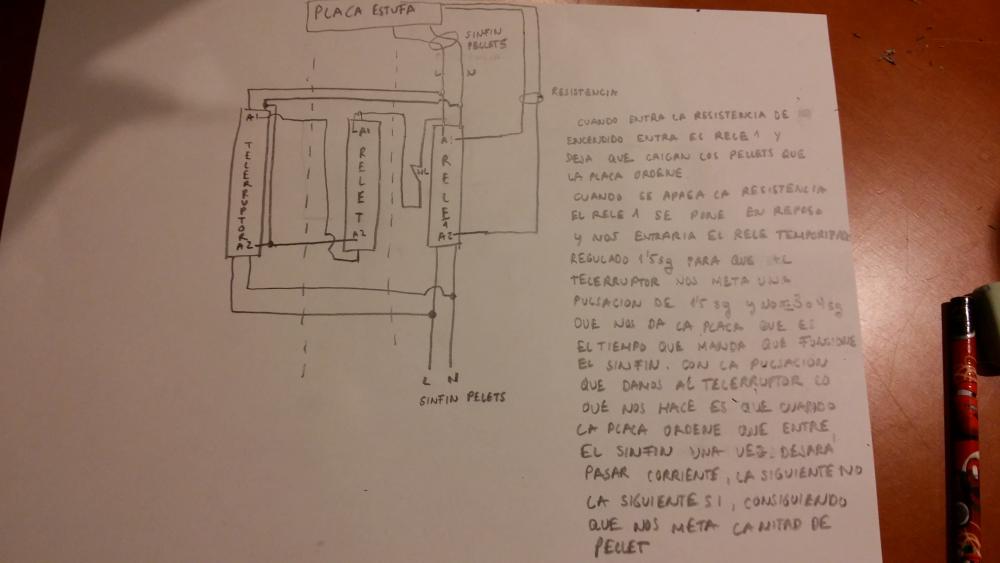 PLACA ESTUFA
SINFIN
PELLETS
L N
RESISTENCIA
A1
TELERRUPTOR
A2
A1
RELE T
A2
A1
RELE 1
A2
L N
SINFIN PELETS
CUANDO ENTRA LA RESISTENCIA DE
ENCENDIDO ENTRA EL RELE 1 Y
DEJA QUE CAIGAN LOS PELLETS QUE
LA PLACA ORDENE.
CUANDO SE APAGA LA RESISTENCIA
EL RELE 1 SE PONE EN REPOSO
Y NOS ENTRARIA EL RELE
REGULADO 1'5 sg PARA QUE EL
TELERRUPTOR NOS META UNA
PULSACION DE 1'5 sg Y NO 3 o 4 sg
QUE NOS DA LA PLACA QUE ES
EL TIEMPO QUE MANDA QUE FUNCIONE
EL SINFIN. CON LA PULSACION
QUE DAMOS AL TELERRUPTOR LO
QUE NOS HACE ES QUE CUANDO
LA PLACA ORDENE QUE ENTRE
EL SINFIN UNA VEZ DEJARA
PASAR CORRIENTE, LA SIGUIENTE NO
LA SIGUIENTE SI, CONSIGUIENDO
QUE NOS META LA MITAD DE
PELLET